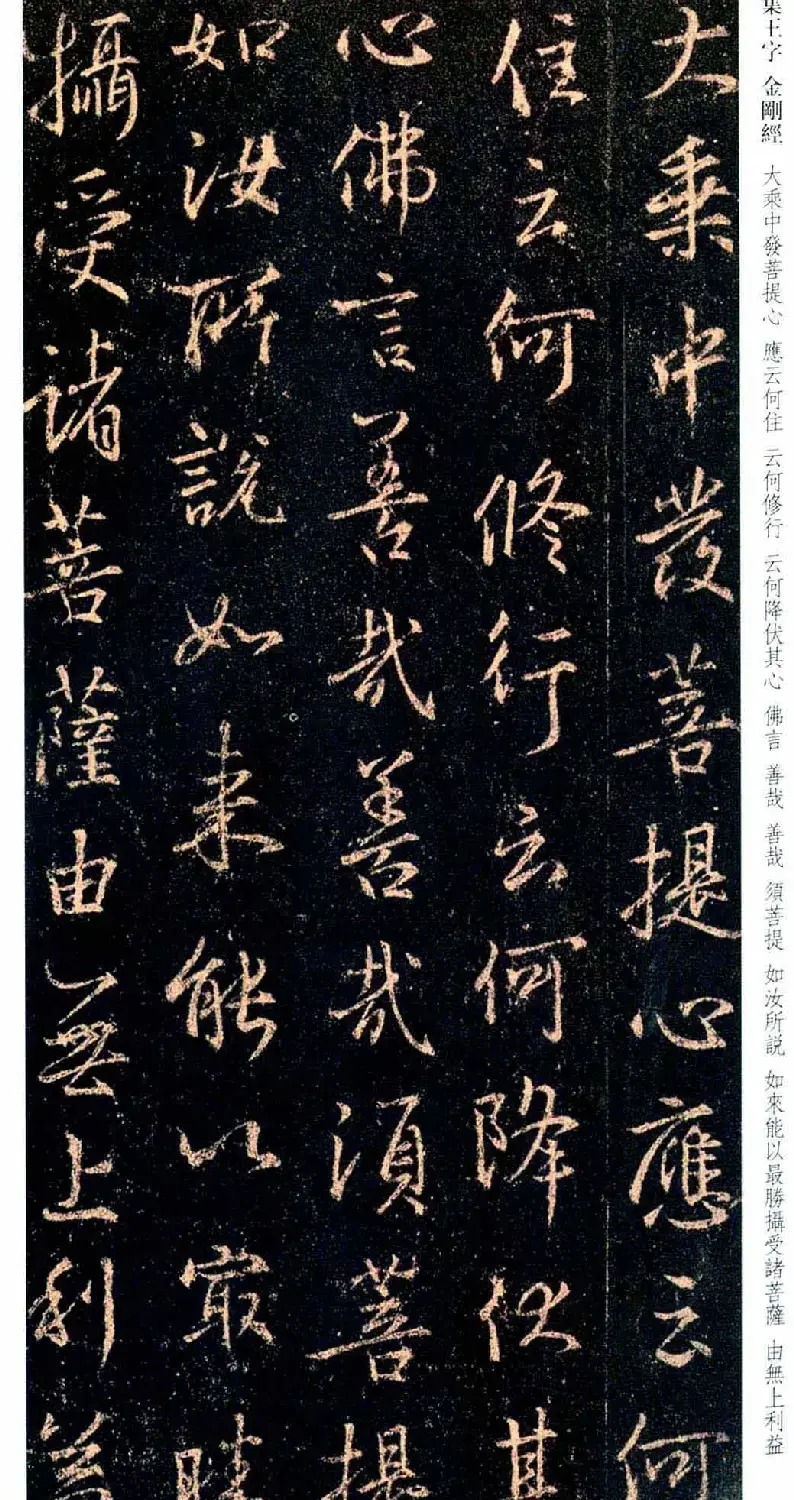 大乘中發菩提心應云何
住云何修行云何降伏其
心佛言善哉善哉須菩提
如汝所說如来能以最勝
攝受諸菩薩由無上利益
集王字 金剛經 大乘中發菩提心 應云何住 云何修行 云何降伏其心 佛言 善哉 善哉 須菩提 如汝所説 如來能以最勝攝受諸菩薩 由無上利益